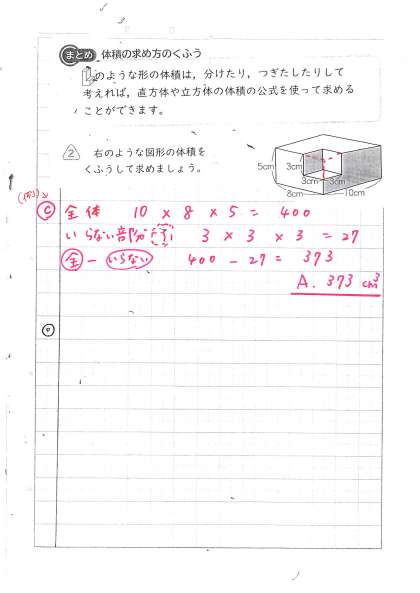 まとめ 体積の求め方のくふう
のような形の体積は，分けたり，つぎたしたりして
考えれば，直方体や立方体の体積の公式を使って求める
ことができます。
2 右のような図形の体積を
くふうして求めましょう。
5cm 3cm
3cm 3cm
8cm 10cm
(例)
C 全体 10 × 8 × 5 = 400
いらない部分 3 × 3 × 3 = 27
全 － いらない 400 － 27 = 373
A. 373 cm³